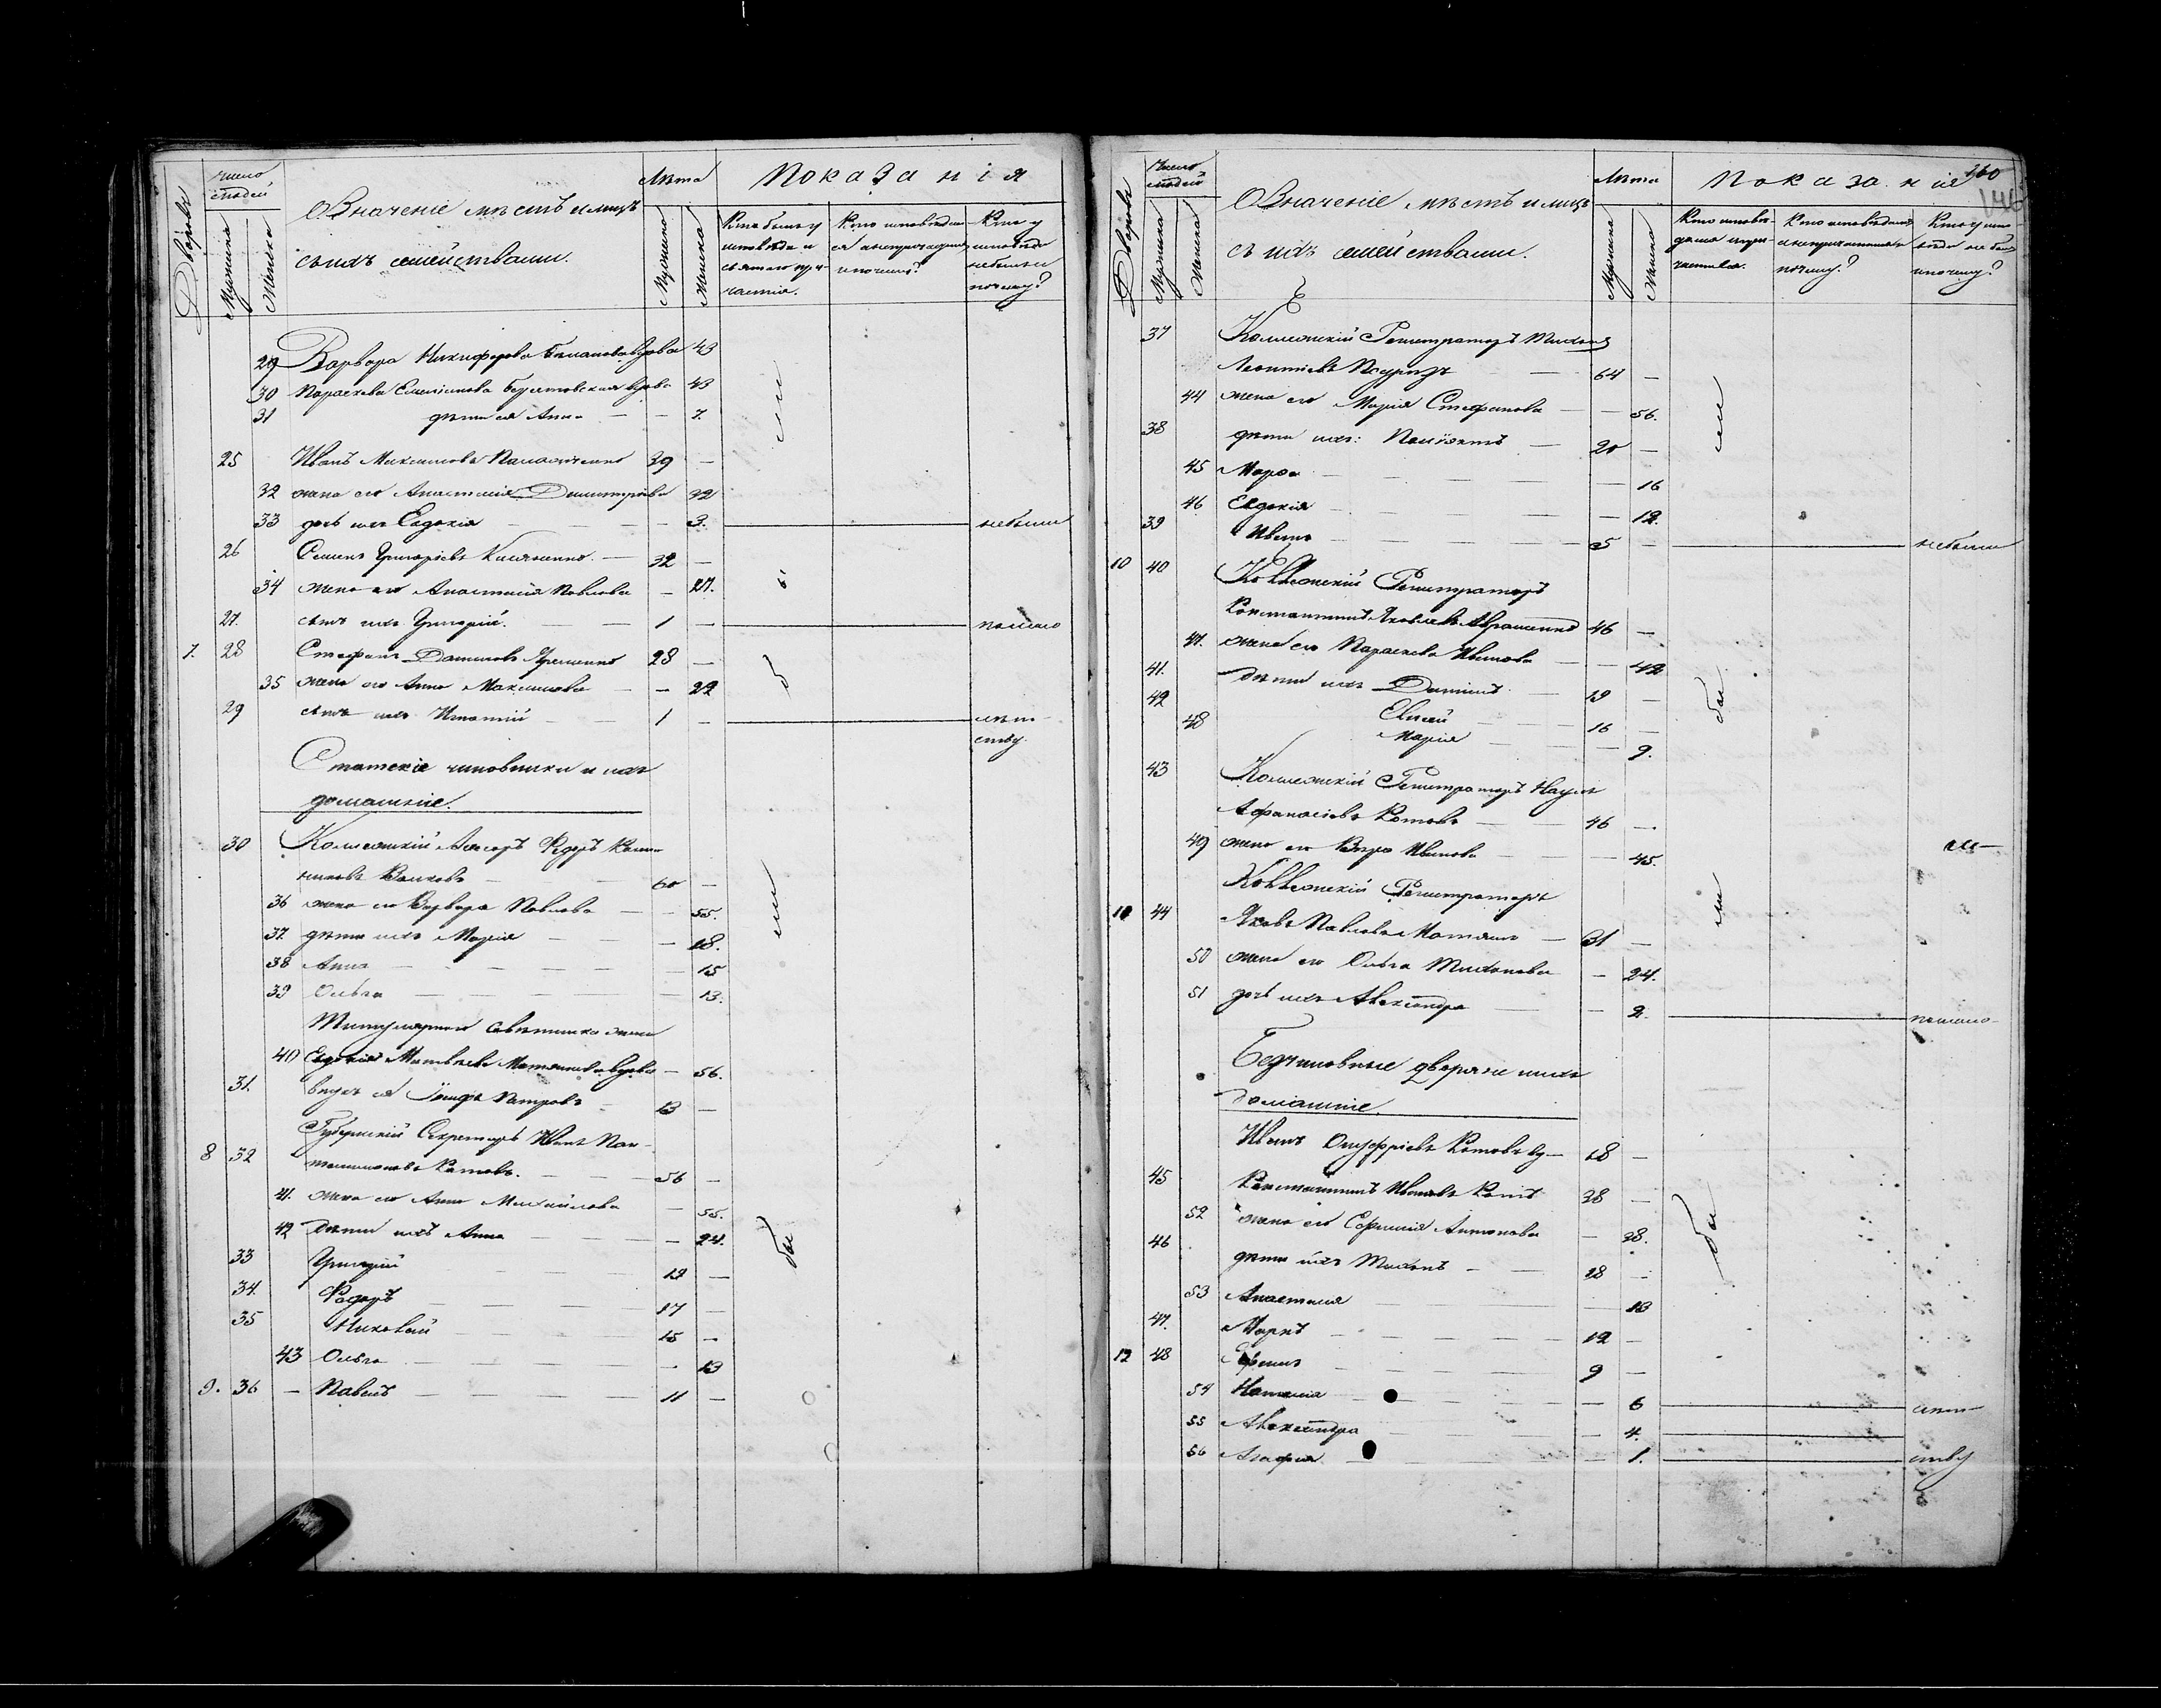 Дворовъ
Число людей
Мужчина
Женска
Означеніе мѣстъ и лицъ
съ ихъ семействами.
Лѣта
Мужчина
Женска
Показанія
Кто былъ у исповѣди и святаго причастія.
Кто исповѣдался а непричащался и почему?
Кто у исповѣди небылъ и почему?
29 Варвара Никифорова вдова 43
30 Параскева вдова 43
31 дѣти ея Анна — — 7.
25 Иванъ Максимовъ 39 —
32 жена его Анастасія Димитріева 32
33 дочь ихъ Евдокія — 3. небыли
26 Семенъ Григоріевъ — 32 —
34 жена его Анастасія Павлова — 27.
27. сынъ ихъ Григорій. — 1 — помало
7. 28 Стефанъ Даниловъ 28 —
35 жена его Анна Максимова — 22
29 сынъ ихъ Игнатій — 1 — лѣт
ству
Статскіе чиновники и ихъ
домашніе.
30 Коллежскій Ассесоръ Ѳедоръ
Волковъ — 60 —
36 жена его Варвара Павлова — 55.
37. дѣти ихъ Марія — 18.
38 Анна — 15
39 Ольга — 13.
Титулярнаго Совѣтника жена
40 Евдокія Матвѣева вдова — 56.
31. внукъ ея Іосифъ Петровъ — 13 —
Губернскій Секретарь Иванъ Пан-
8 32 телимоновъ Котовъ. — 56 —
41. жена его Анна Михайлова — 55.
42 дѣти ихъ Анна — 24.
33 Григорій 19 —
34. Ѳедоръ 17 —
35 Николай 15 —
43 Ольга — 13
9. 36 — Павелъ — 11 —
360
146
Дворовъ
Число людей
Мужчина
Женска
Означеніе мѣстъ и лицъ
съ ихъ семействами.
Лѣта
Мужчина
Женска
Показанія
Кто исповѣдался и причастился.
Кто исповѣдался а непричастился и почему?
Кто у исповѣди не былъ и почему?
37 Коллежскій Регистраторъ Тихонъ
Леонтіевъ — 64 —
44 жена его Марія Стефанова — 56.
38 дѣти ихъ: — 20 —
45 Марѳа — 16
46 Евдокія — 12.
39 Иванъ — 5 — небыли
10 40 Коллежскій Регистраторъ
Константинъ Яковлевъ Авраменко 46 —
47. жена его Параскева Иванова — 42
41. Дѣти ихъ Даніилъ — 19 —
42 Евсей 16 —
48 Марія — 9.
43 Коллежскій Регистраторъ Наумъ
Афанасіевъ Котовъ — 46 —
49 жена его Вѣра Иванова — 45.
Коллежскій Регистраторъ
11 44 Яковъ Павловъ — 31 —
50 жена его Ольга Тихонова — 24.
51 дочь ихъ Александра — 2. помало
Безчиновные дворяне и ихъ
домашніе
Иванъ Онуфріевъ Котовъ 18 —
45 Константинъ Ивановъ Котъ 38 —
52 жена его Евфимія Антонова — 38.
46 дѣти ихъ Тихонъ — 18 —
53 Анастасія — 13
47. Маркъ — 12 —
12 48 Ефимъ — 9 —
54 Наталія — 6 лѣт
55 Александра — 4.
56 Агафія — 1. ству